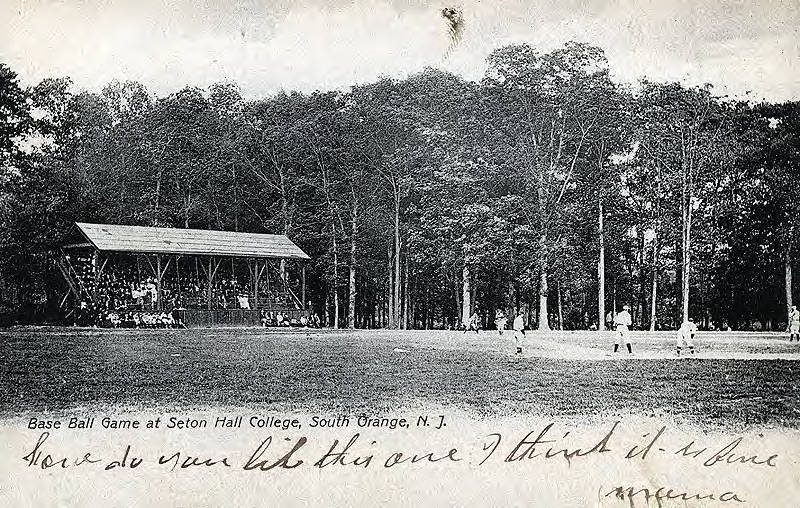 Base Ball Game at Seton Hall College, South Orange, N. J.
How do you like this one I think it is fine
mama